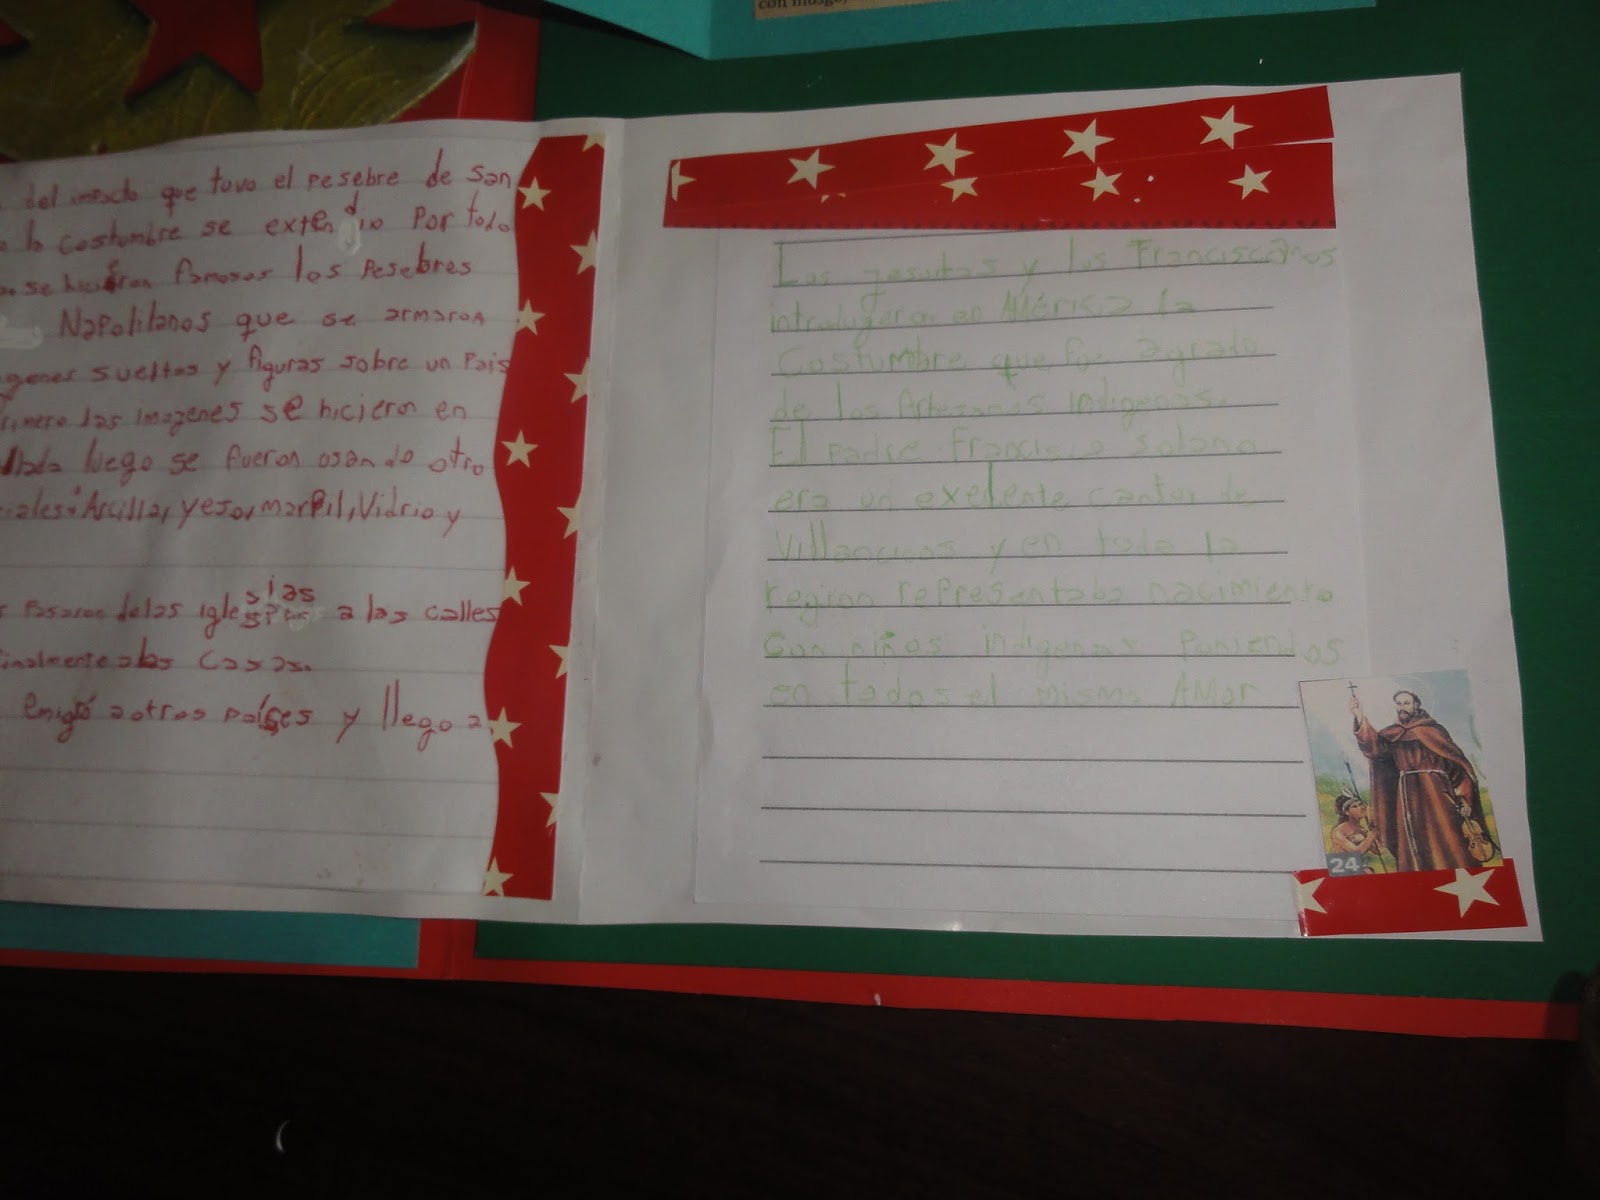 con musgo,
del impacto que tuvo el pesebre de San
la costumbre se extendio por todo
se hicieron famosos los Pesebres
Napolitanos que se armaron
genes sueltas y figuras sobre un Pais
rimero las imagenes se hicieron en
luego se fueron usando otro
iales: Arcilla, yeso, marfil, Vidrio y
s Pasaron delas iglesias a las calles
inalmente a las Casas.
Emigró a otros países y llego a
Los jesuitas y los Franciscanos
introdugeron en América la
Costumbre que fue agrado
de los Artesanos Indígenas.
El Padre Francisco Solano
era un exelente cantor de
Villancicos y en toda la
region representaba nacimiento
Con niños indigenas Poniendos
en todos el mismo AMor
24